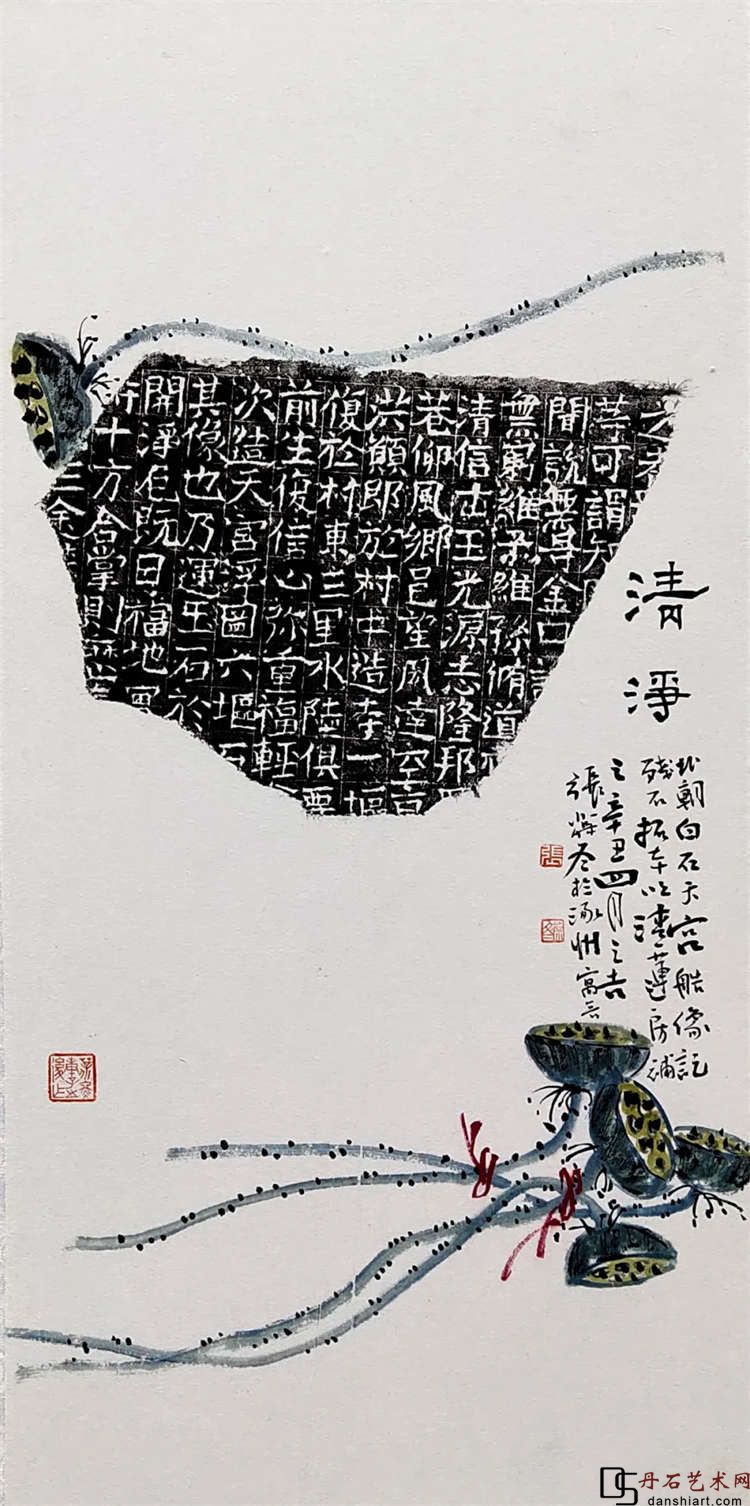 之
菩可謂
聞說無㝵金口
無窮維子維孫脩道
清信士王光源志隆邦
巷仰風鄉邑望風達空
洪願即於村中造寺一塸
復於村東三里水陸俱
前生復信心弥重福輕
次造天宮浮圖六塸石
其像也乃運玉石於
開淨既曰福地
十方合掌
三
清
淨
北朝白石天宮造像記
殘石拓本以清蓮房補
之辛丑四月之吉
張於涿州寓
張
丹石艺术网
danshiart.com